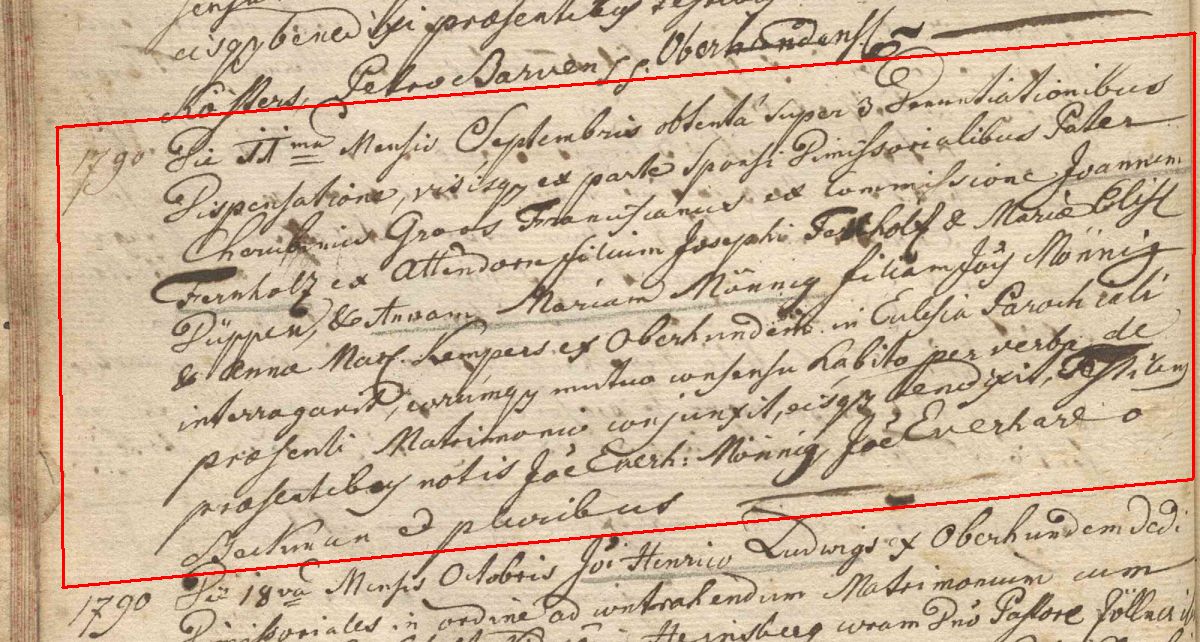 eisq, bened
præsentibus
Kösters, Petro Barwen Oberhundens
1790 Die 11ma Mensis Septembris obtenta super 3 Denuntiationibus
Dispensatione, visisq, ex parte Sponsi Dimissorialibus Pater
Cherubinus Groos Franciscanus ex Commissione Joannem
Fernholz ex Attendorn filium Josephi Fernholz & Mariæ Elis
Püppen, & Annam Mariam Mönnig filiam Jois Mönnig
& Annæ Mar. Kempers ex Oberhundem in Eclesia Parochiali
interrogavit, eorumq, mutuo consensu habito per verba de
præsenti Matrimonio conjunxit, eisq, benedixit, Testibus
præsentibus notis Joe Everh: Mönnig, Joe Everhardo
Beckman & pluribus
1790 Die 18va Mensis Octobris Joi Henrico Ludwigs ex Oberhundem dedi
Dimissoriales in ordine ad contrahendum Matrimonium cum
Heinsberg coram Dno Pastore Zöllner